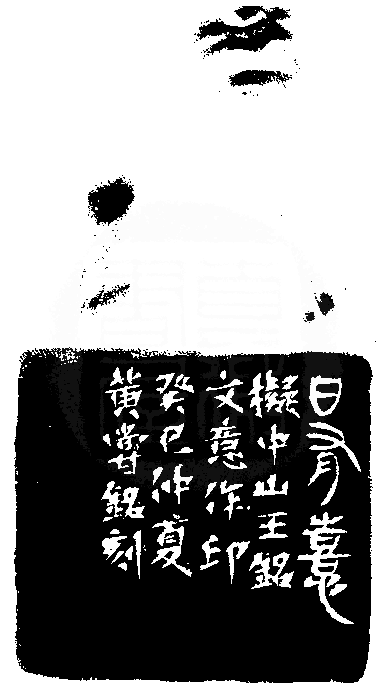 日有憙
擬中山王銘
文意作印
癸巳仲夏
黃嘗銘刻